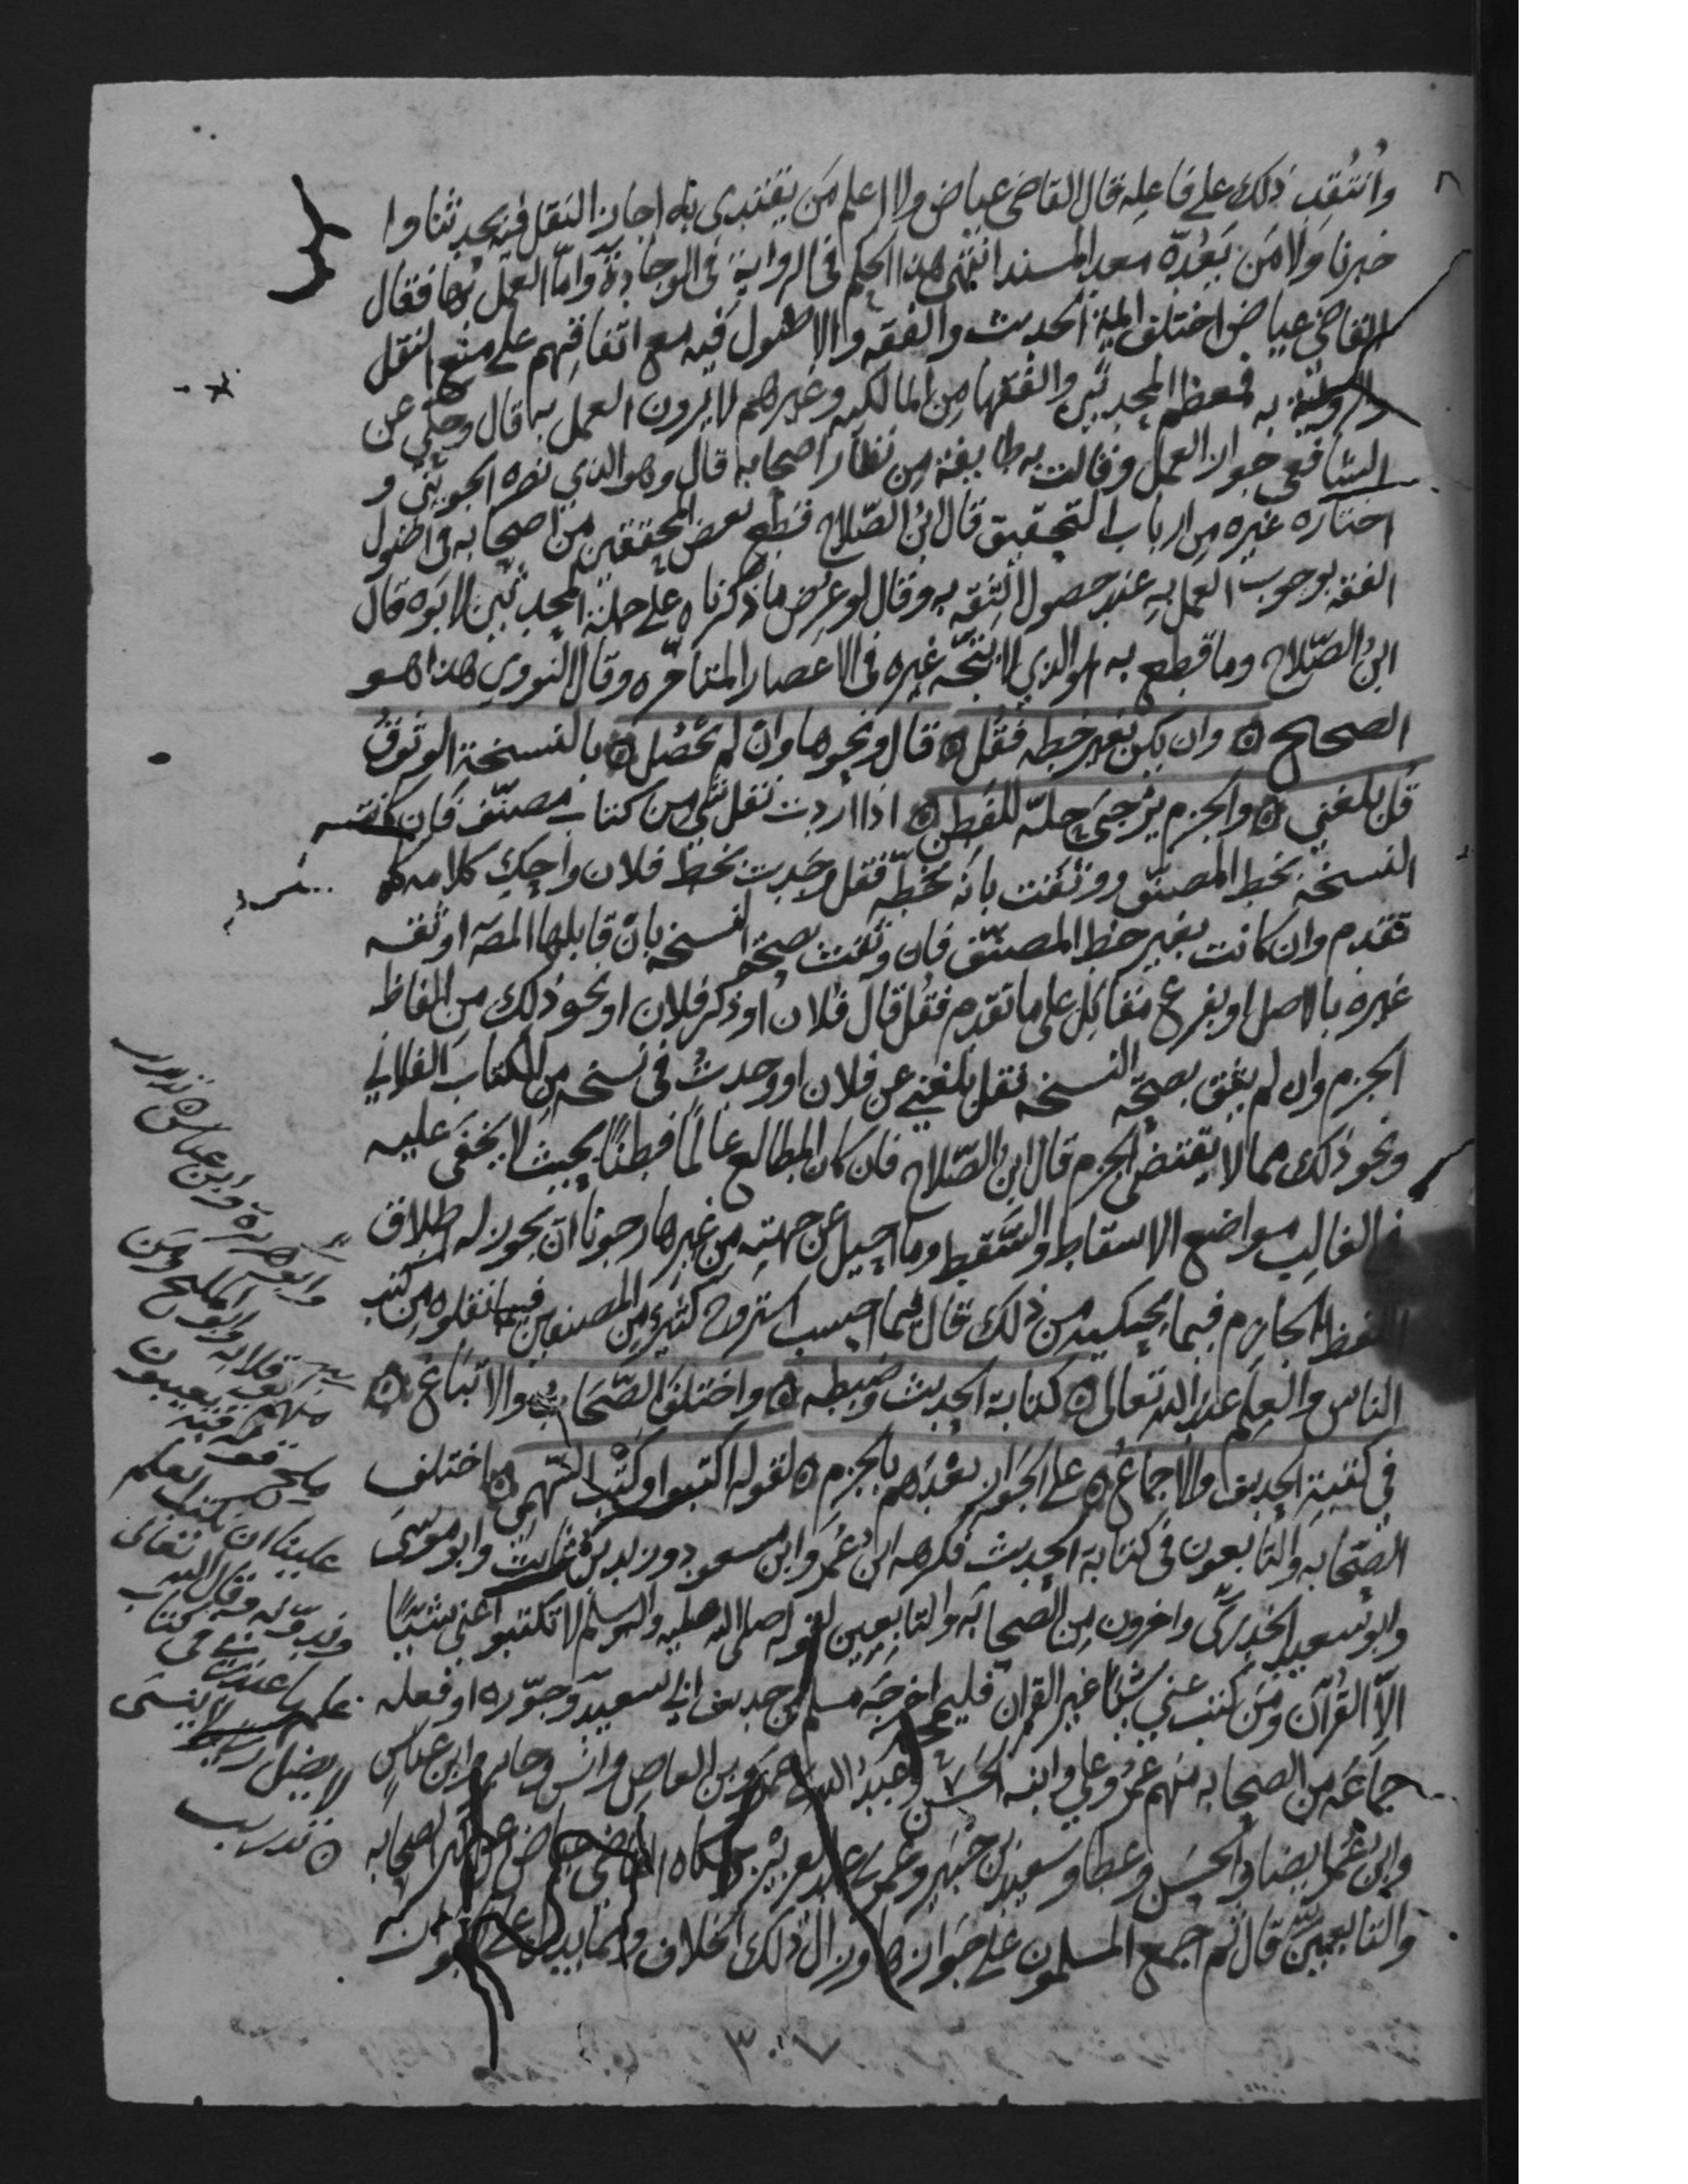 وانتقد ذلك على فاعله قال القاضي عياض ولا اعلم من يقتدى به اجاز النقل فيه بحدثنا وا
خبرنا ولا من يعده معد المسند انتهى هذا الحكم في الرواية في الوجادة واما العمل بها فقال
القاضي عياض اختلف ايمة الحديث والفقه والاصول فيه مع اتفاقهم على منع النقل
والرواية به فمعظم المحدثين والفقها من المالكيه وغيرهم لا يرون العمل به قال وحكي عن
الشافعي جواز العمل وقالت به طايفة من نظار اصحابه قال وهو الذي نصره الجويني و
اختاره غيره من ارباب التحقيق قال ابن الصلاح قطع بعض المحققين من اصحابه في اصول
الفقه بوجوب العمل به عند حصول الثقه به وقال لو عرض ما ذكرناه على جملة المحدثين لابوه قال
ابن الصلاح وما قطع به هو الذي لا يتجه غيره في الاعصار المتاخره وقال النووي هذا هو
الصحيح ه وان يكن بغير خطه فقل ه قال ونحوها وان لم تحصل ه بالنسخة الوثوق
قل بلغني ه والجزم يرجى حله للفطن ه اذا اردت نقل شي من كتاب مصنف فان كانت
النسخة بخط المصنف ووثقت بانه بخطه فقل وجدت بخط فلان واحك كلامه كما
تقدم وان كانت بغير خط المصنف فان وثقت بصحة النسخه بان قابلها المصـ او ثقه
غيره بالاصل او بفرع مقابل على ما تقدم فقل قال فلان او ذكر فلان او نحو ذلك من الفاظ
الجزم وان لم يثق بصحة النسخه فقل بلغني عن فلان او وجدت في نسخه من الكتاب الفلاني
ونحو ذلك مما لا يقتضي الجزم قال ابن الصلاح فان كان المطالع عالما فطنا بحيث لا يخفى عليه
في الغالب مواضع الاسقاط والسقط وما احيل عن جهته من غيرها رجونا ان يجوز له اطلاق
اللفظ الجازم فيما يحكيه من ذلك قال فيما احسب استروح كثير من المصنفين فيما نقلوه من كتب
الناس والعلم عند الله تعالى ه كتابة الحديث وضبطه ه واختلف الصحاب والاتباع ه
في كتبة الحديث والاجماع ه على الجواز بعدهم بالجزم ه لقوله اكتبوا وكتب السهمي ه اختلف
الصحابه والتابعون في كتابة الحديث فكرهه ابن عمر وابن مسعود وزيد بن ثابت وابو موسى
وابو سعيد الخدري واخرون من الصحابه والتابعين لقوله صلى الله عليه واله وسلم لا تكتبوا عني شيئا
الا القرآن ومن كتب عني شيئا غير القران فليمحه اخرجه مسلم من حديث ابي سعيد وجوزه او فعله
جماعة من الصحابه منهم عمر وعلي وابنه الحسن وعبد الله بن عمرو بن العاص وانس وجابر وابن عباس
وابن عمر ايضا والحسن وعطا وسعيد بن جبير وعمر بن عبد العزيز وحكاه القاضي عياض عن اكثر الصحابه
والتابعين قال ثم اجمع المسلمون على جوازها وزال ذلك الخلاف ومما يدل على الجواز
وابو هريرة وابن عباس ه تدريب
منهم ابو قلابه وابو المليح ومن
مليح قوله فيه يعيبون
علينا ان نكتب العلم
وندونه وقد قال الله تعالى
علمها عند ربي في كتاب
لا يضل ربي ولا ينسى
ه تدريب
٣٠٧